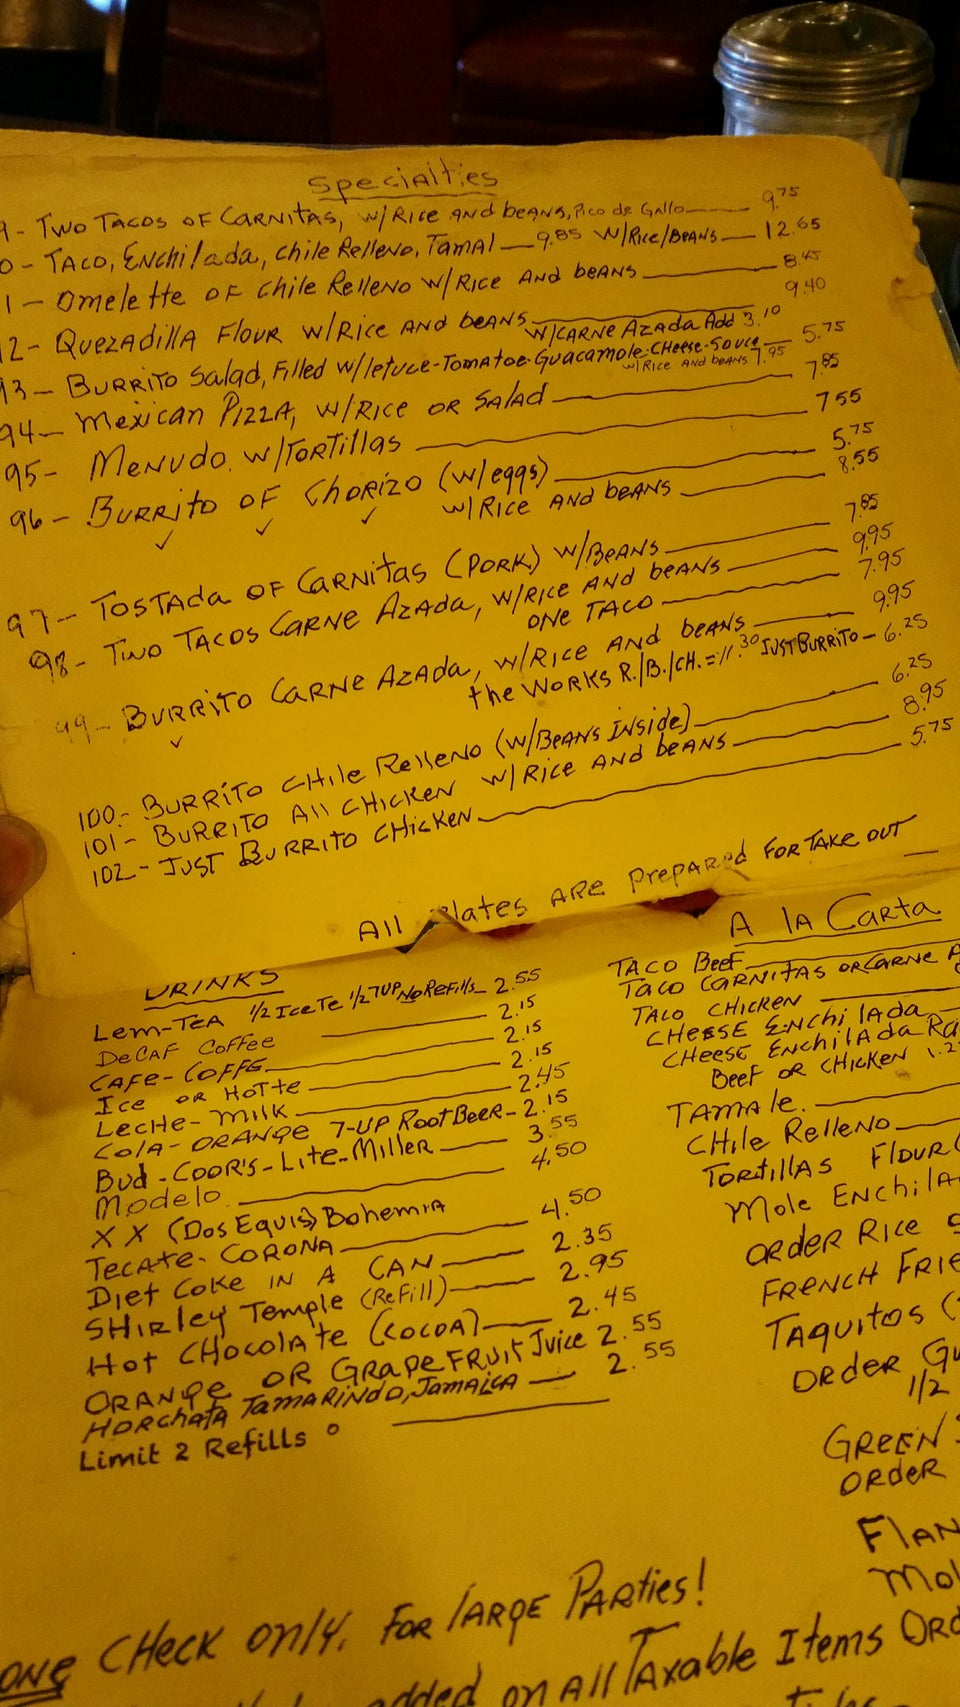 Specialties
9- TWO TACOS OF CARNITAS, W/RICE AND beANS, Pico de Gallo 9.75
0- TACO, ENChilada, Chile Relleno, TAMAl 9.85 W/RICE/BEANS 12.65
1- Omelette OF Chile Relleno W/RICE AND beANS 8.45
12- QUEZADILLA FLOUR W/RICE AND beANS 9.40
W/CARNE AZADA Add 3.10
93- BURRITO Salad, Filled W/letuce-TOMATOE-GUACAMOLE-CHeese-Souce 5.75
W/RICE AND beANS 7.95
94- Mexican PIZZA, W/RICE OR SAlAD 7.85
95- MENUDO. W/TORTILLAS 7.55
96- BURRITO OF CHORIZO (W/eggs) 5.75
W/RICE AND beANS 8.55
97- TOSTAda OF CARNITAS (PORK) W/BEANS 7.85
98- TWO TACOS CARNE AZADA, W/RICE AND beANS 9.95
ONE TACO 7.95
99- BURRITO CARNE AZADA, W/RICE AND beANS 9.95
the WORKS R./B./CH. = 11.30 JUST BURRITO - 6.25
100- BURRITO CHILE Relleno (W/BEANS INSIde) 6.25
101- BURRITO All CHICKEN W/RICE AND beANS 8.95
102- JUST BURRITO CHICKEN 5.75
All Plates ARE PrepARed FOR TAKE OUT
DRINKS
Lem-TEA 1/2 Ice Te 1/2 7UP No Refills 2.55
DeCAF COFFee 2.15
CAFE-COFFE 2.15
Ice OR HOT Te 2.15
LECHE-MILK 2.45
COLA-ORANGE 7-UP ROOT BEER- 2.15
Bud-COOR'S-Lite-Miller 3.55
Modelo 4.50
XX (DOS EQUIS) BoheMIA
TECATE-CORONA 4.50
DIET COKE IN A CAN 2.35
SHIRLEY TEMPLE (Refill) 2.95
HOT CHOCOLATE (COCOA) 2.45
ORANGE OR GRAPEFRUIT JUICE 2.55
HORCHATA TAMARINDO, JAMAICA 2.55
LIMIT 2 Refills
A lA CARTA
TACO BeeF
TACO CARNITAS OR CARNE A
TACO CHICKEN
CHEESE ENCHILADA
CHEESE ENCHILADA Ra
BeeF OR CHICKEN 1.2
TAMALe.
CHILe Relleno
TORTILLAS FLOUR (
Mole ENCHILA
ORDER RICE
FRENCH FRIE
TAQUITOS (
ORDER GU
1/2
GREEN
ORDER
FLAN
Mol
ONE CHECK ONLY. FOR LARGE PARTIES!
added ON All TAXABLE ITEMS ORD